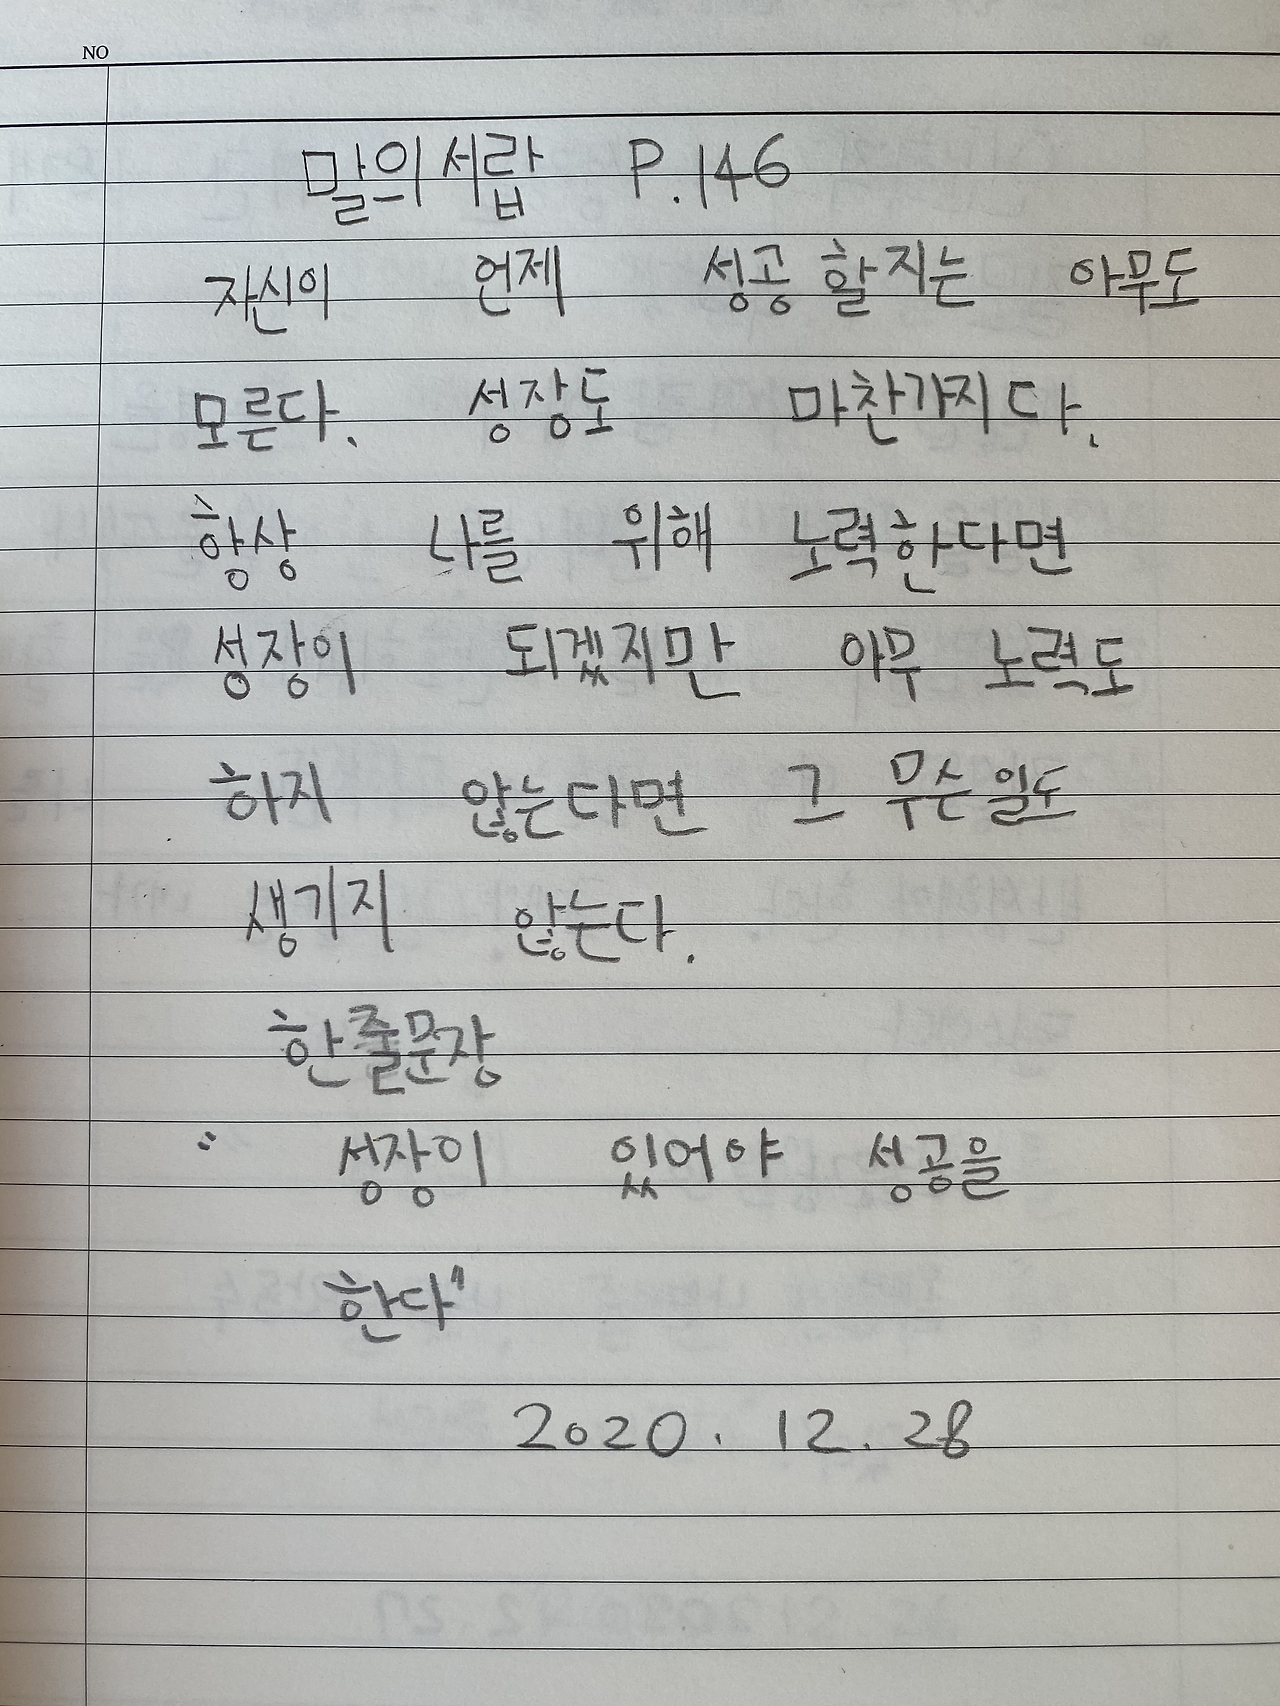 NO
말의 서랍 P.146
자신이 언제 성공 할지는 아무도
모른다. 성장도 마찬가지다.
항상 나를 위해 노력한다면
성장이 되겠지만 아무 노력도
하지 않는다면 그 무슨일도
생기지 않는다.
한줄문장
"성장이 있어야 성공을
한다"
2020. 12. 28